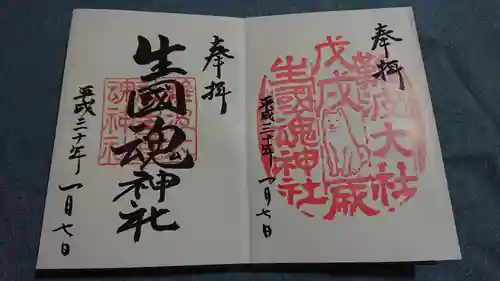 奉拝
戊戌歳
難波大社
生國魂神社
平成三十年
一月七日
奉拝
生國魂神社
平成三十年
一月七日